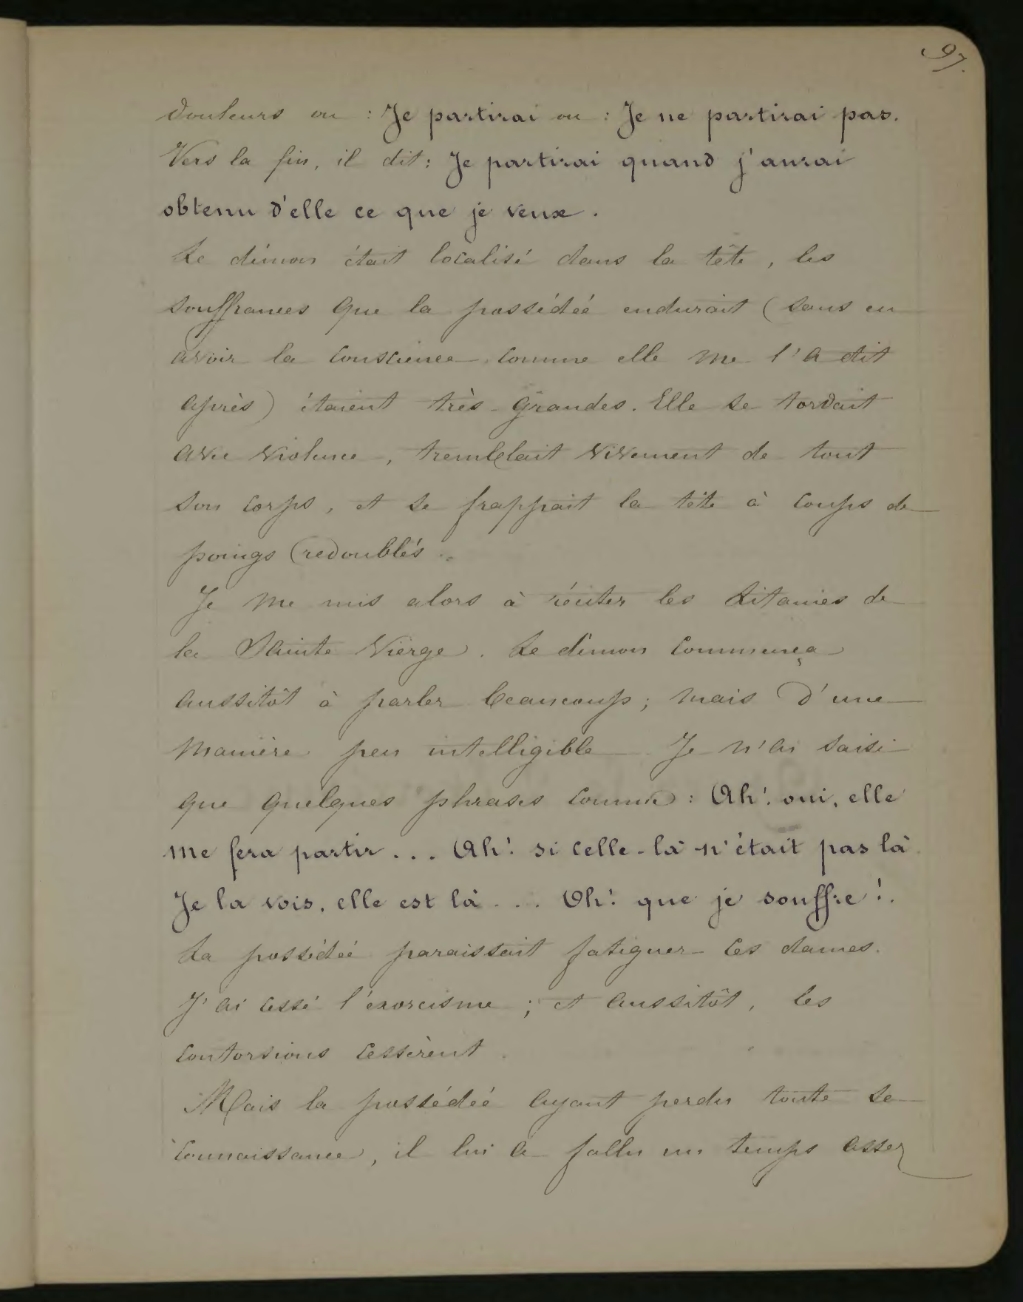 97.
douleurs ou : Je partirai ou : Je ne partirai pas.
Vers la fin, il dit : Je partirai quand j'aurai
obtenu d'elle ce que je veux.
Le démon était localisé dans la tête, les
souffrances que la possédée endurait (sans en
avoir la conscience, comme elle me l'a dit
après) étaient très grandes. Elle se tordait
avec violence, tremblait vivement de tout
son corps, et se frappait la tête à coups de
poings redoublés.
Je me mis alors à réciter les Litanies de
la Sainte Vierge. Le démon commença
aussitôt à parler beaucoup ; mais d'une
manière peu intelligible. Je n'ai saisi
que quelques phrases comme : Ah! oui, elle
me fera partir... Ah! si celle-là n'était pas là
Je la vois, elle est là.... Oh! que je souffre!.
La possédée paraissait fatiguer ces dames.
J'ai cessé l'exorcisme ; et aussitôt, les
contorsions cessèrent.
Mais la possédée ayant perdu toute sa
connaissance, il lui a fallu un temps assez